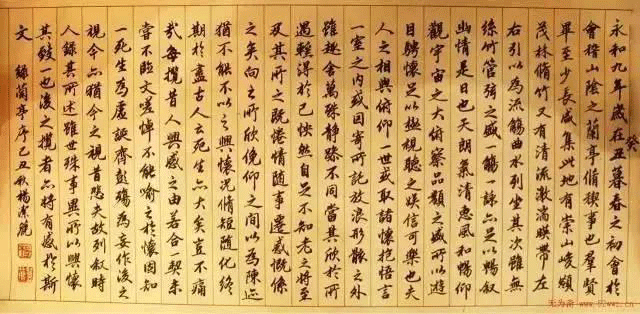 永和九年歲在癸丑暮春之初會於
會稽山陰之蘭亭脩禊事也羣賢
畢至少長咸集此地有崇山峻領
茂林脩竹又有清流激湍暎帶左
右引以為流觴曲水列坐其次雖無
絲竹管弦之盛一觴一詠亦足以暢叙
幽情是日也天朗氣清惠風和暢仰
觀宇宙之大俯察品類之盛所以遊
目騁懷足以極視聽之娛信可樂也夫
人之相與俯仰一世或取諸懷抱悟言
一室之內或因寄所託放浪形骸之外
雖趣舍萬殊靜躁不同當其欣於所
遇輒得於己快然自足不知老之將至
及其所之既惓情隨事遷感慨係
之矣向之所欣俛仰之間以為陳迹
猶不能不以之興懷況脩短隨化終
期於盡古人云死生亦大矣豈不痛
哉每攬昔人興感之由若合一契未
嘗不臨文嗟悼不能喻之於懷固知
一死生為虛誕齊彭殤為妄作後之
視今亦猶今之視昔悲夫故列敘時
人錄其所述雖世殊事異所以興懷
其致一也後之攬者亦將有感於斯
文 錄蘭亭序己丑秋楊潔